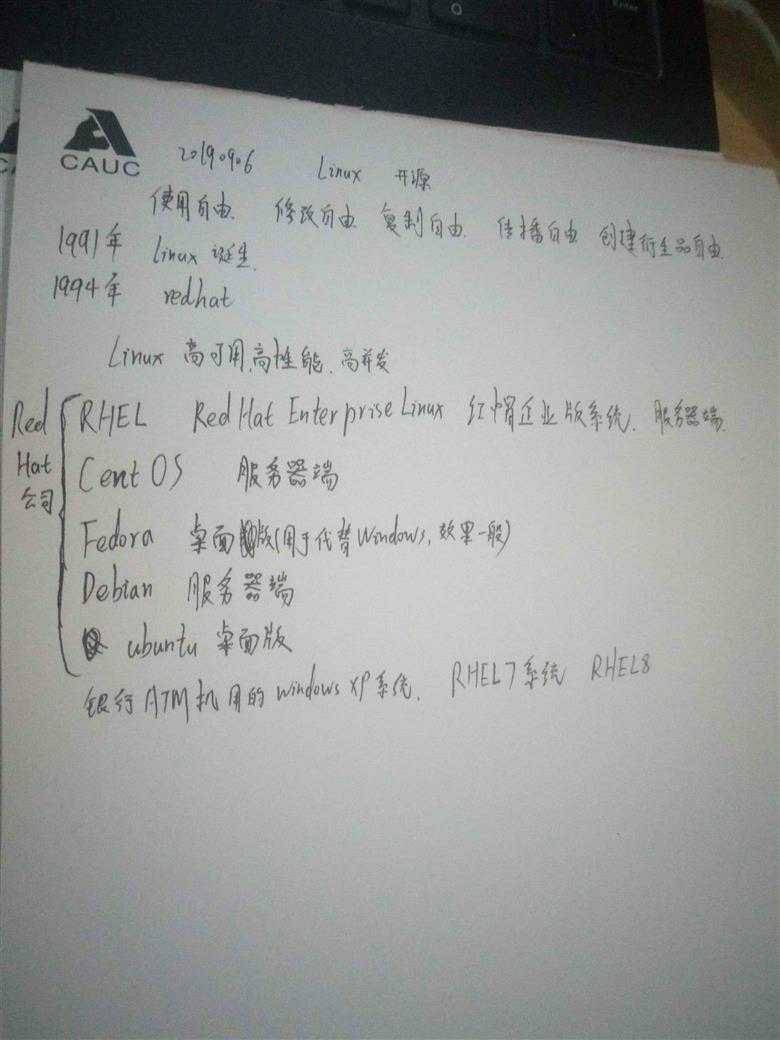 Enter
CAUC
20190906 Linux 开源
使用自由. 修改自由 复制自由. 传播自由 创建衍生品自由.
1991年 Linux 诞生.
1994年 redhat
Linux 高可用.高性能.高并发
Red Hat 公司
RHEL Red Hat Enterprise Linux 红帽企业版系统. 服务器端.
CentOS 服务器端
Fedora 桌面版(用于代替Windows,效果一般)
Debian 服务器端
ubuntu 桌面版
银行ATM机用的windows XP系统. RHEL7系统 RHEL8